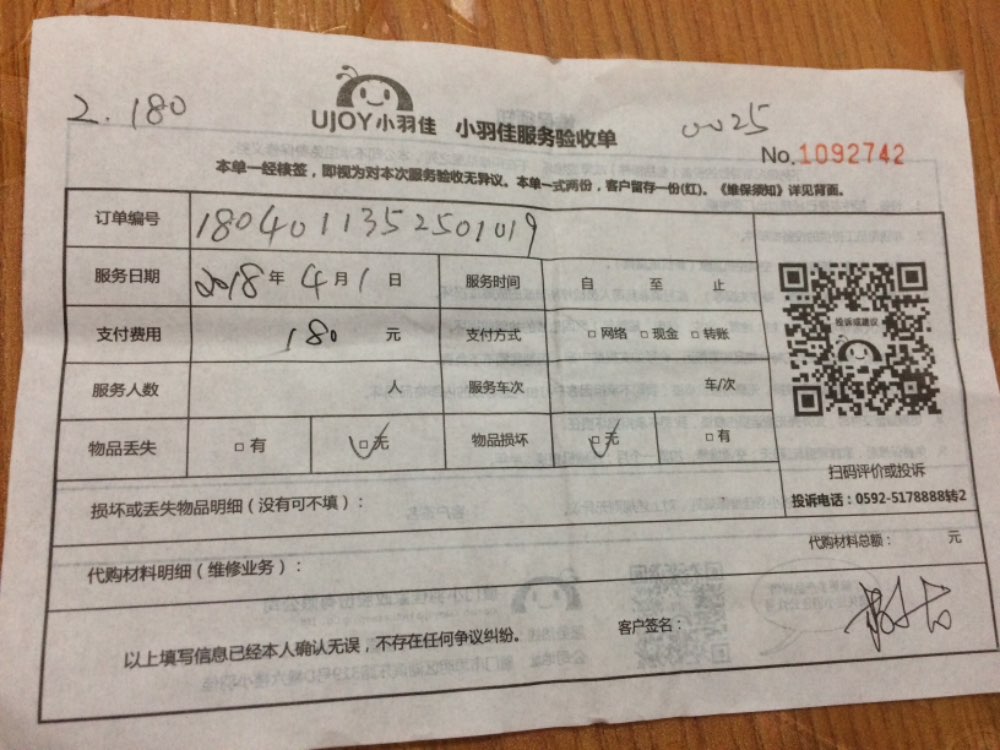 2.180
UJOY小羽佳 小羽佳服务验收单
0025
No.1092742
本单一经核签，即视为对本次服务验收无异议。本单一式两份，客户留存一份(红)。《维保须知》详见背面。
订单编号 1804011352501019
服务日期 2018年4月1日 服务时间 自 至 止
支付费用 180 元 支付方式 □网络 □现金 □转账
服务人数 人 服务车次 车/次
物品丢失 □有 □无 物品损坏 □无 □有
投诉或建议
扫码评价或投诉
投诉电话：0592-5178888转2
损坏或丢失物品明细（没有可不填）：
代购材料明细（维修业务）： 代购材料总额： 元
以上填写信息已经本人确认无误，不存在任何争议纠纷。 客户签名：